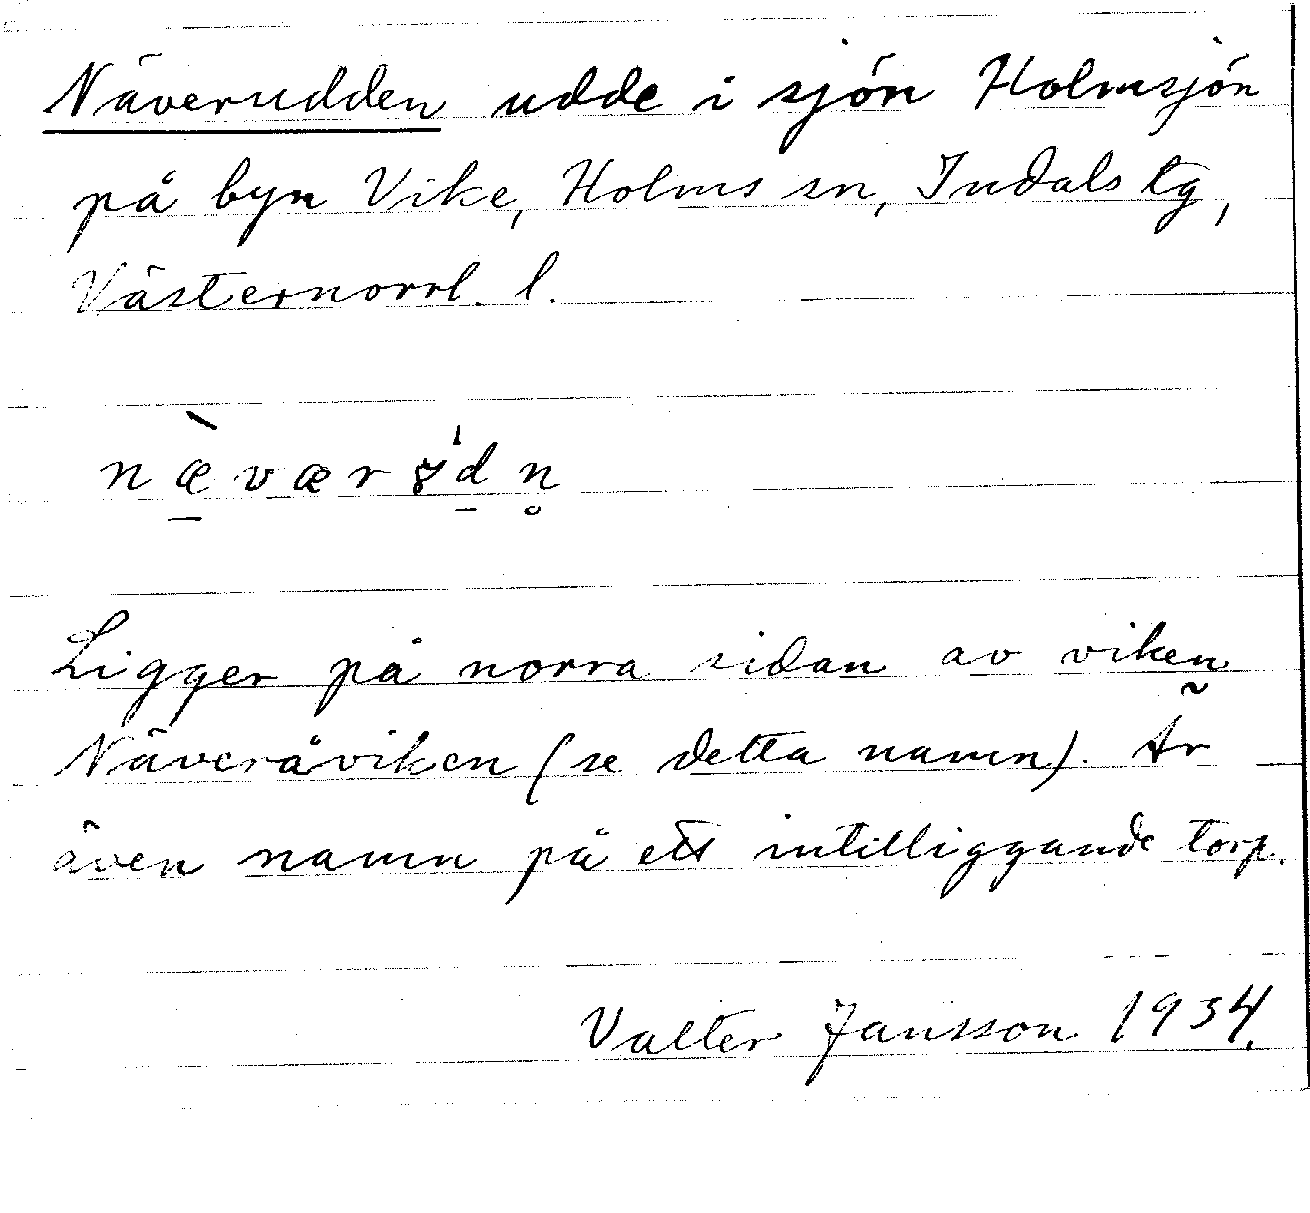 Näverudden udde i sjön Holmsjön
på byn Vike, Holms sn, Indals tg,
Västernorrl. l.
Ligger på norra sidan av viken
Näveråviken (se detta namn). Är
även namn på ett intilliggande torp.
Valter Jansson 1934.